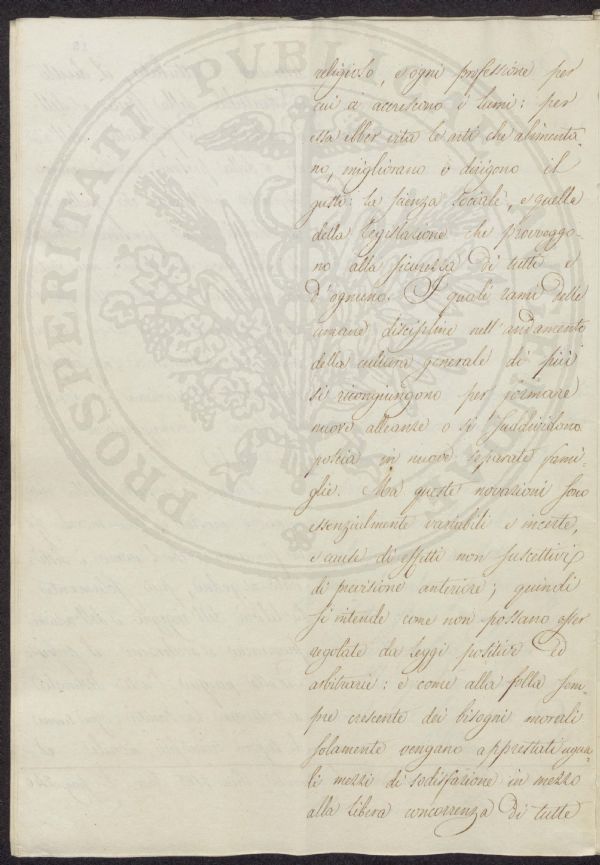 religioso, e ogni professione per
cui ci accrescono i lumi: per
essa ebber vita le arti che alimenta-
no, migliorano e dirigono il
gusto: la scienza sociale, e quella
della legislazione che provveggo-
no alla sicurezza di tutti e
d'ognuno. I quali rami delle
umane discipline nell'andamento
della cultura generale di più
si ricongiungono per formare
nuove alleanze o si suddividono
poscia in nuove separate fami-
glie. Ma queste novazioni sono
essenzialmente variabili e incerte,
e cause di effetti non suscettivi
di previsione anteriore; quindi
s'intende come non possano esser
regolate da leggi positive ed
arbitrarie: e come alla folla sem-
pre crescente dei bisogni morali
solamente vengano apprestati ugua-
li mezzi di sodisfazione in mezzo
alla libera concorrenza di tutte
PROSPERITATI PUBLICAE